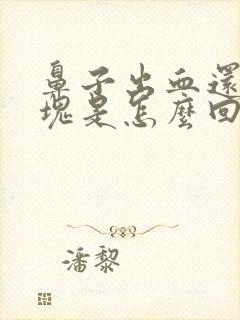 鼻子出血還
塊是怎麼回
潘黎